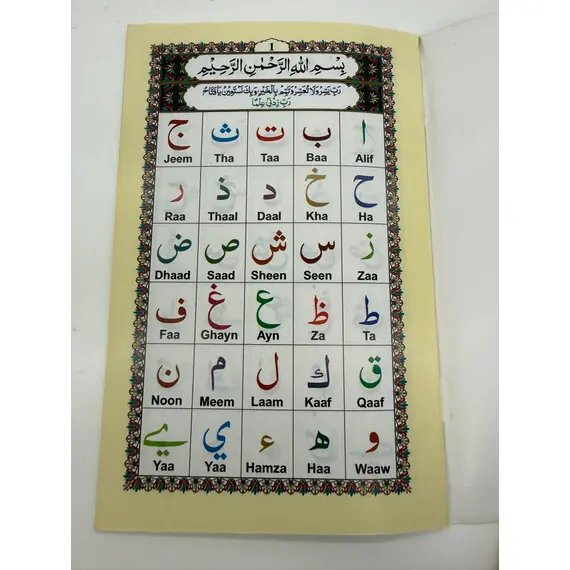 1
بِسْمِ اللهِ الرَّحْمٰنِ الرَّحِيْمِ
رَبِّ يَسِّرْ وَلَا تُعَسِّرْ وَتَمِّمْ بِالْخَيْرِ وَبِكَ نَسْتَعِيْنُ يَا فَتَّاحُ
رَبِّ زِدْنِيْ عِلْمًا
ا ب ت ث ج
Alif Baa Taa Tha Jeem
ح خ د ذ ر
Ha Kha Daal Thaal Raa
ز س ش ص ض
Zaa Seen Sheen Saad Dhaad
ط ظ ع غ ف
Ta Za Ayn Ghayn Faa
ق ك ل م ن
Qaaf Kaaf Laam Meem Noon
و ه ء ي ے
Waaw Haa Hamza Yaa Yaa